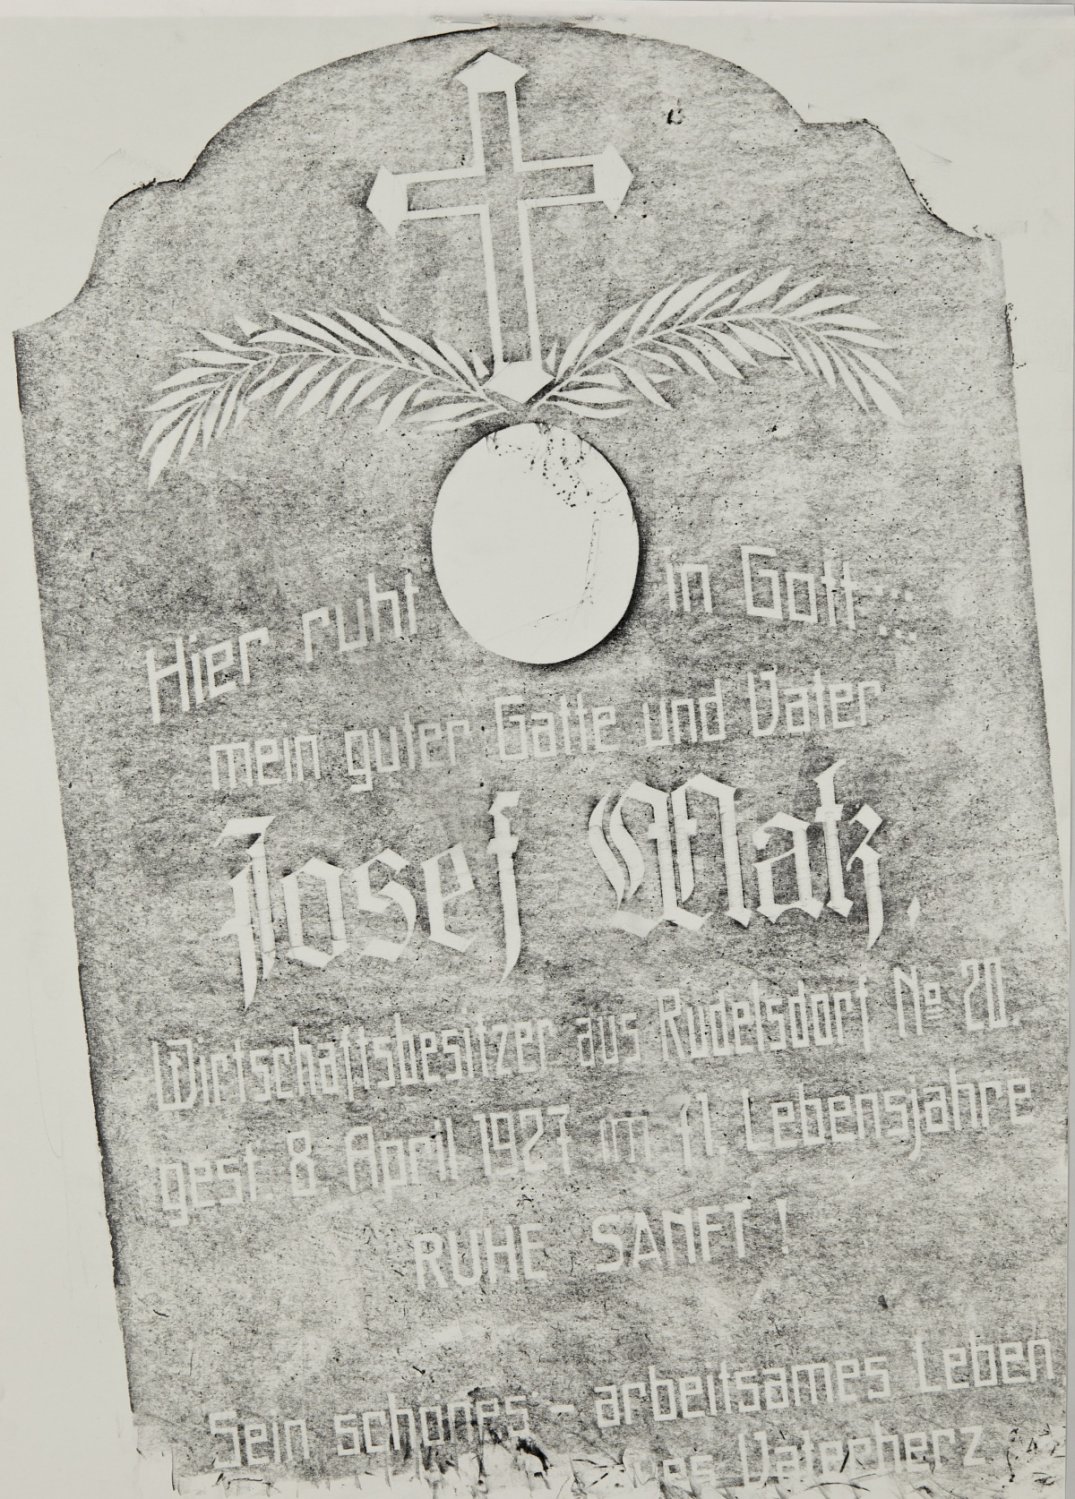 Hier ruht in Gott:
mein guter Gatte und Vater
Josef Matz.
Wirtschaftsbesitzer aus Rudelsdorf No 20.
gest. 8 April 1927 im 71. Lebensjahre
RUHE SANFT!
Sein schönes - arbeitsames Leben
Vaterherz